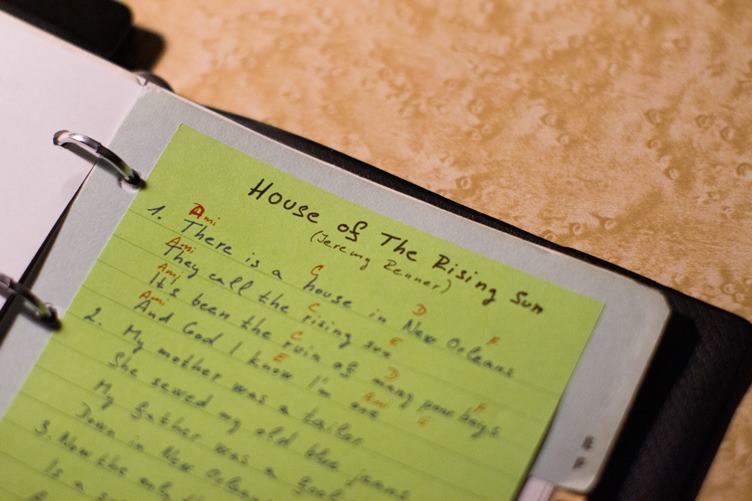 House of The Rising Sun
(Jeremy Renner)
Ami C D F
1. There is a house in New Orleans
Ami C E
They call the rising sun
Ami C D F
It's been the ruin of many poor boys
Ami E Ami E
And God I know I'm one
2. My mother was a tailor
She sewed my old blue jeans
My father was a
Down in New Orleans
3. Now the only
Is a